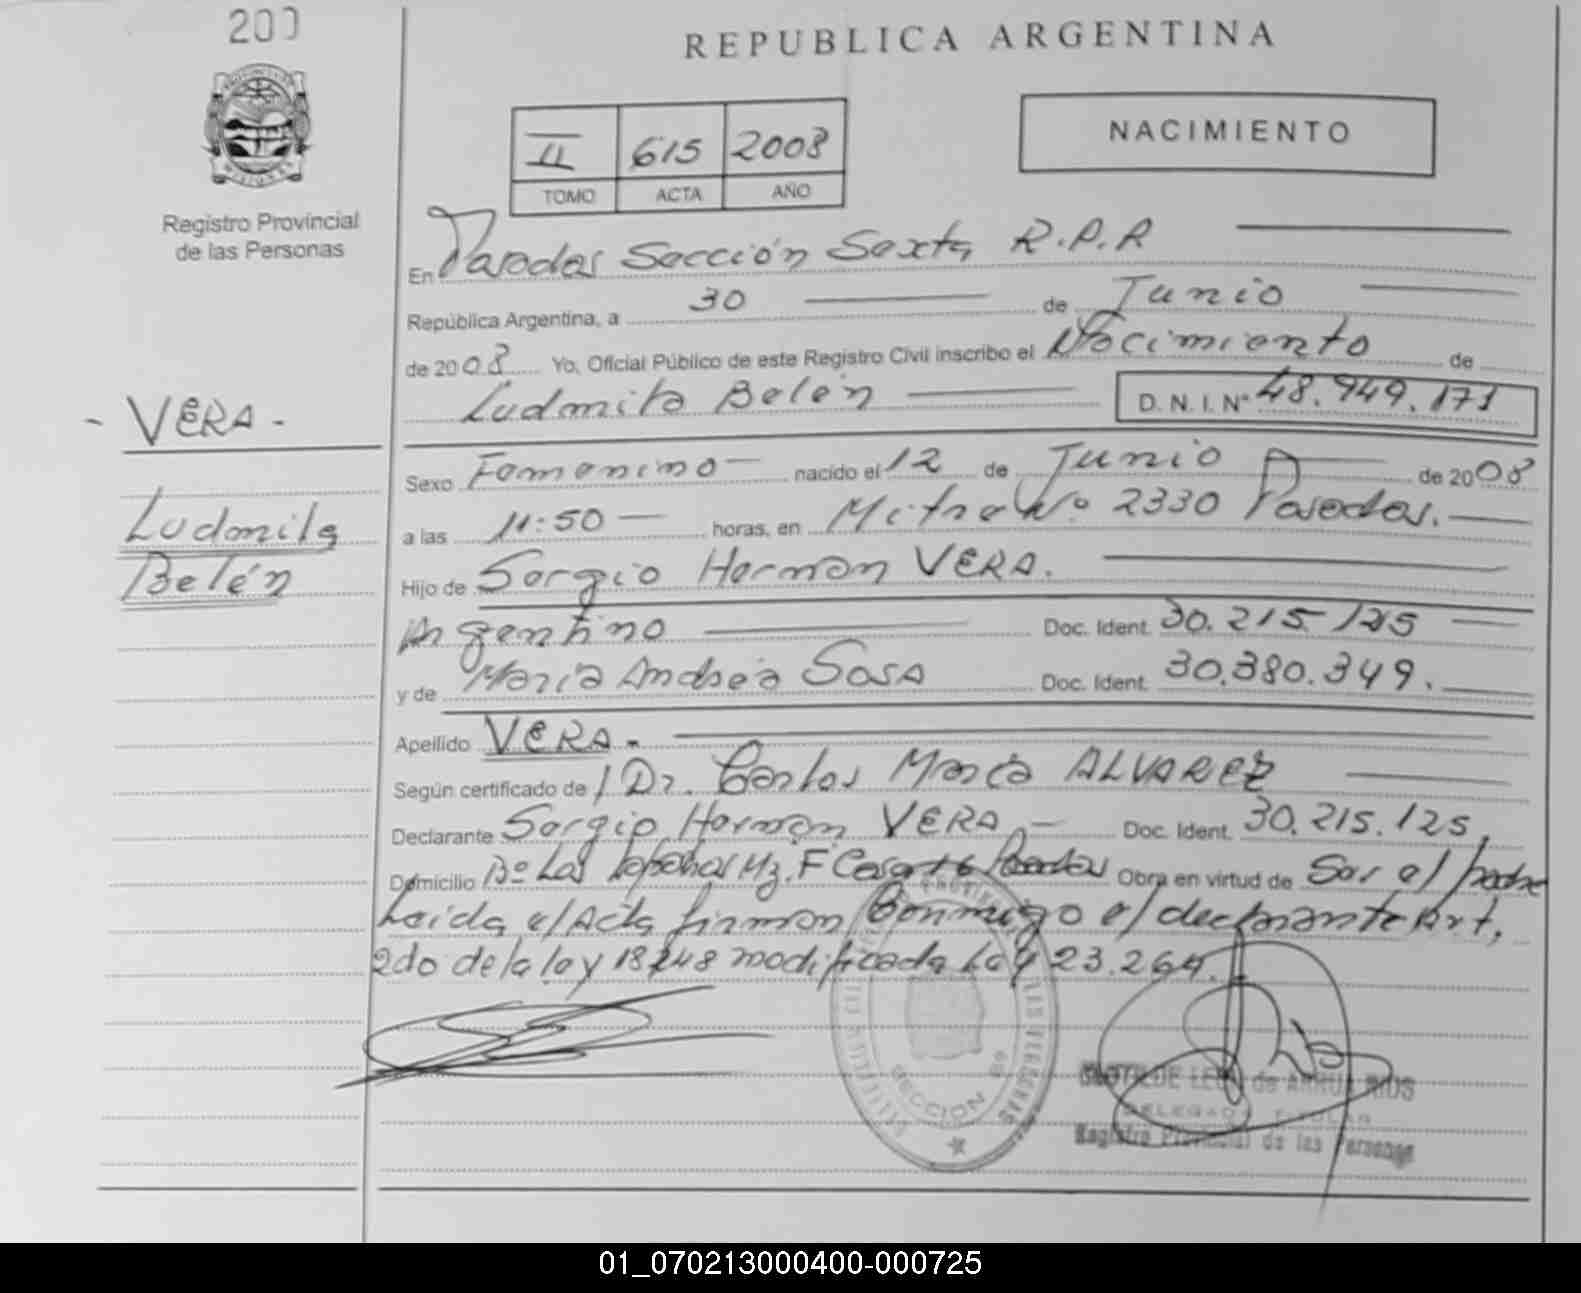 200
REPUBLICA ARGENTINA
NACIMIENTO
II 615 2008
TOMO ACTA AÑO
Registro Provincial
de las Personas
En Posadas Sección Sexta R.P.R
República Argentina, a 30 de Junio
de 2008 Yo, Oficial Público de este Registro Civil inscribo el Nacimiento de
Ludmila Belén D.N.I.Nº 48.949.171
- VERA -
Ludmila
Belén
Sexo Femenino nacido el 12 de Junio de 2008
a las 11:50 horas, en Mitre Nº 2330 Posadas.
Hijo de Sergio Hernan VERA.
Argentino Doc. Ident. 30.215.125
y de María Andrea Sosa Doc. Ident. 30.380.349.
Apellido VERA.
Según certificado de / Dr. Carlos María ALVAREZ
Declarante Sergio Hernan VERA Doc. Ident. 30.215.125.
Domicilio Bº Las Mz. F Casa 16 Posadas Obra en virtud de Ser el padre
Leida el Acta firman Conmigo el declarante Art.
2do de la ley 18248 modificada Ley 23.264.
SECCION 6ª
CLOTILDE LEON de ARRUA RIOS
DELEGADA TITULAR
Registro Provincial de las Personas
01_070213000400-000725